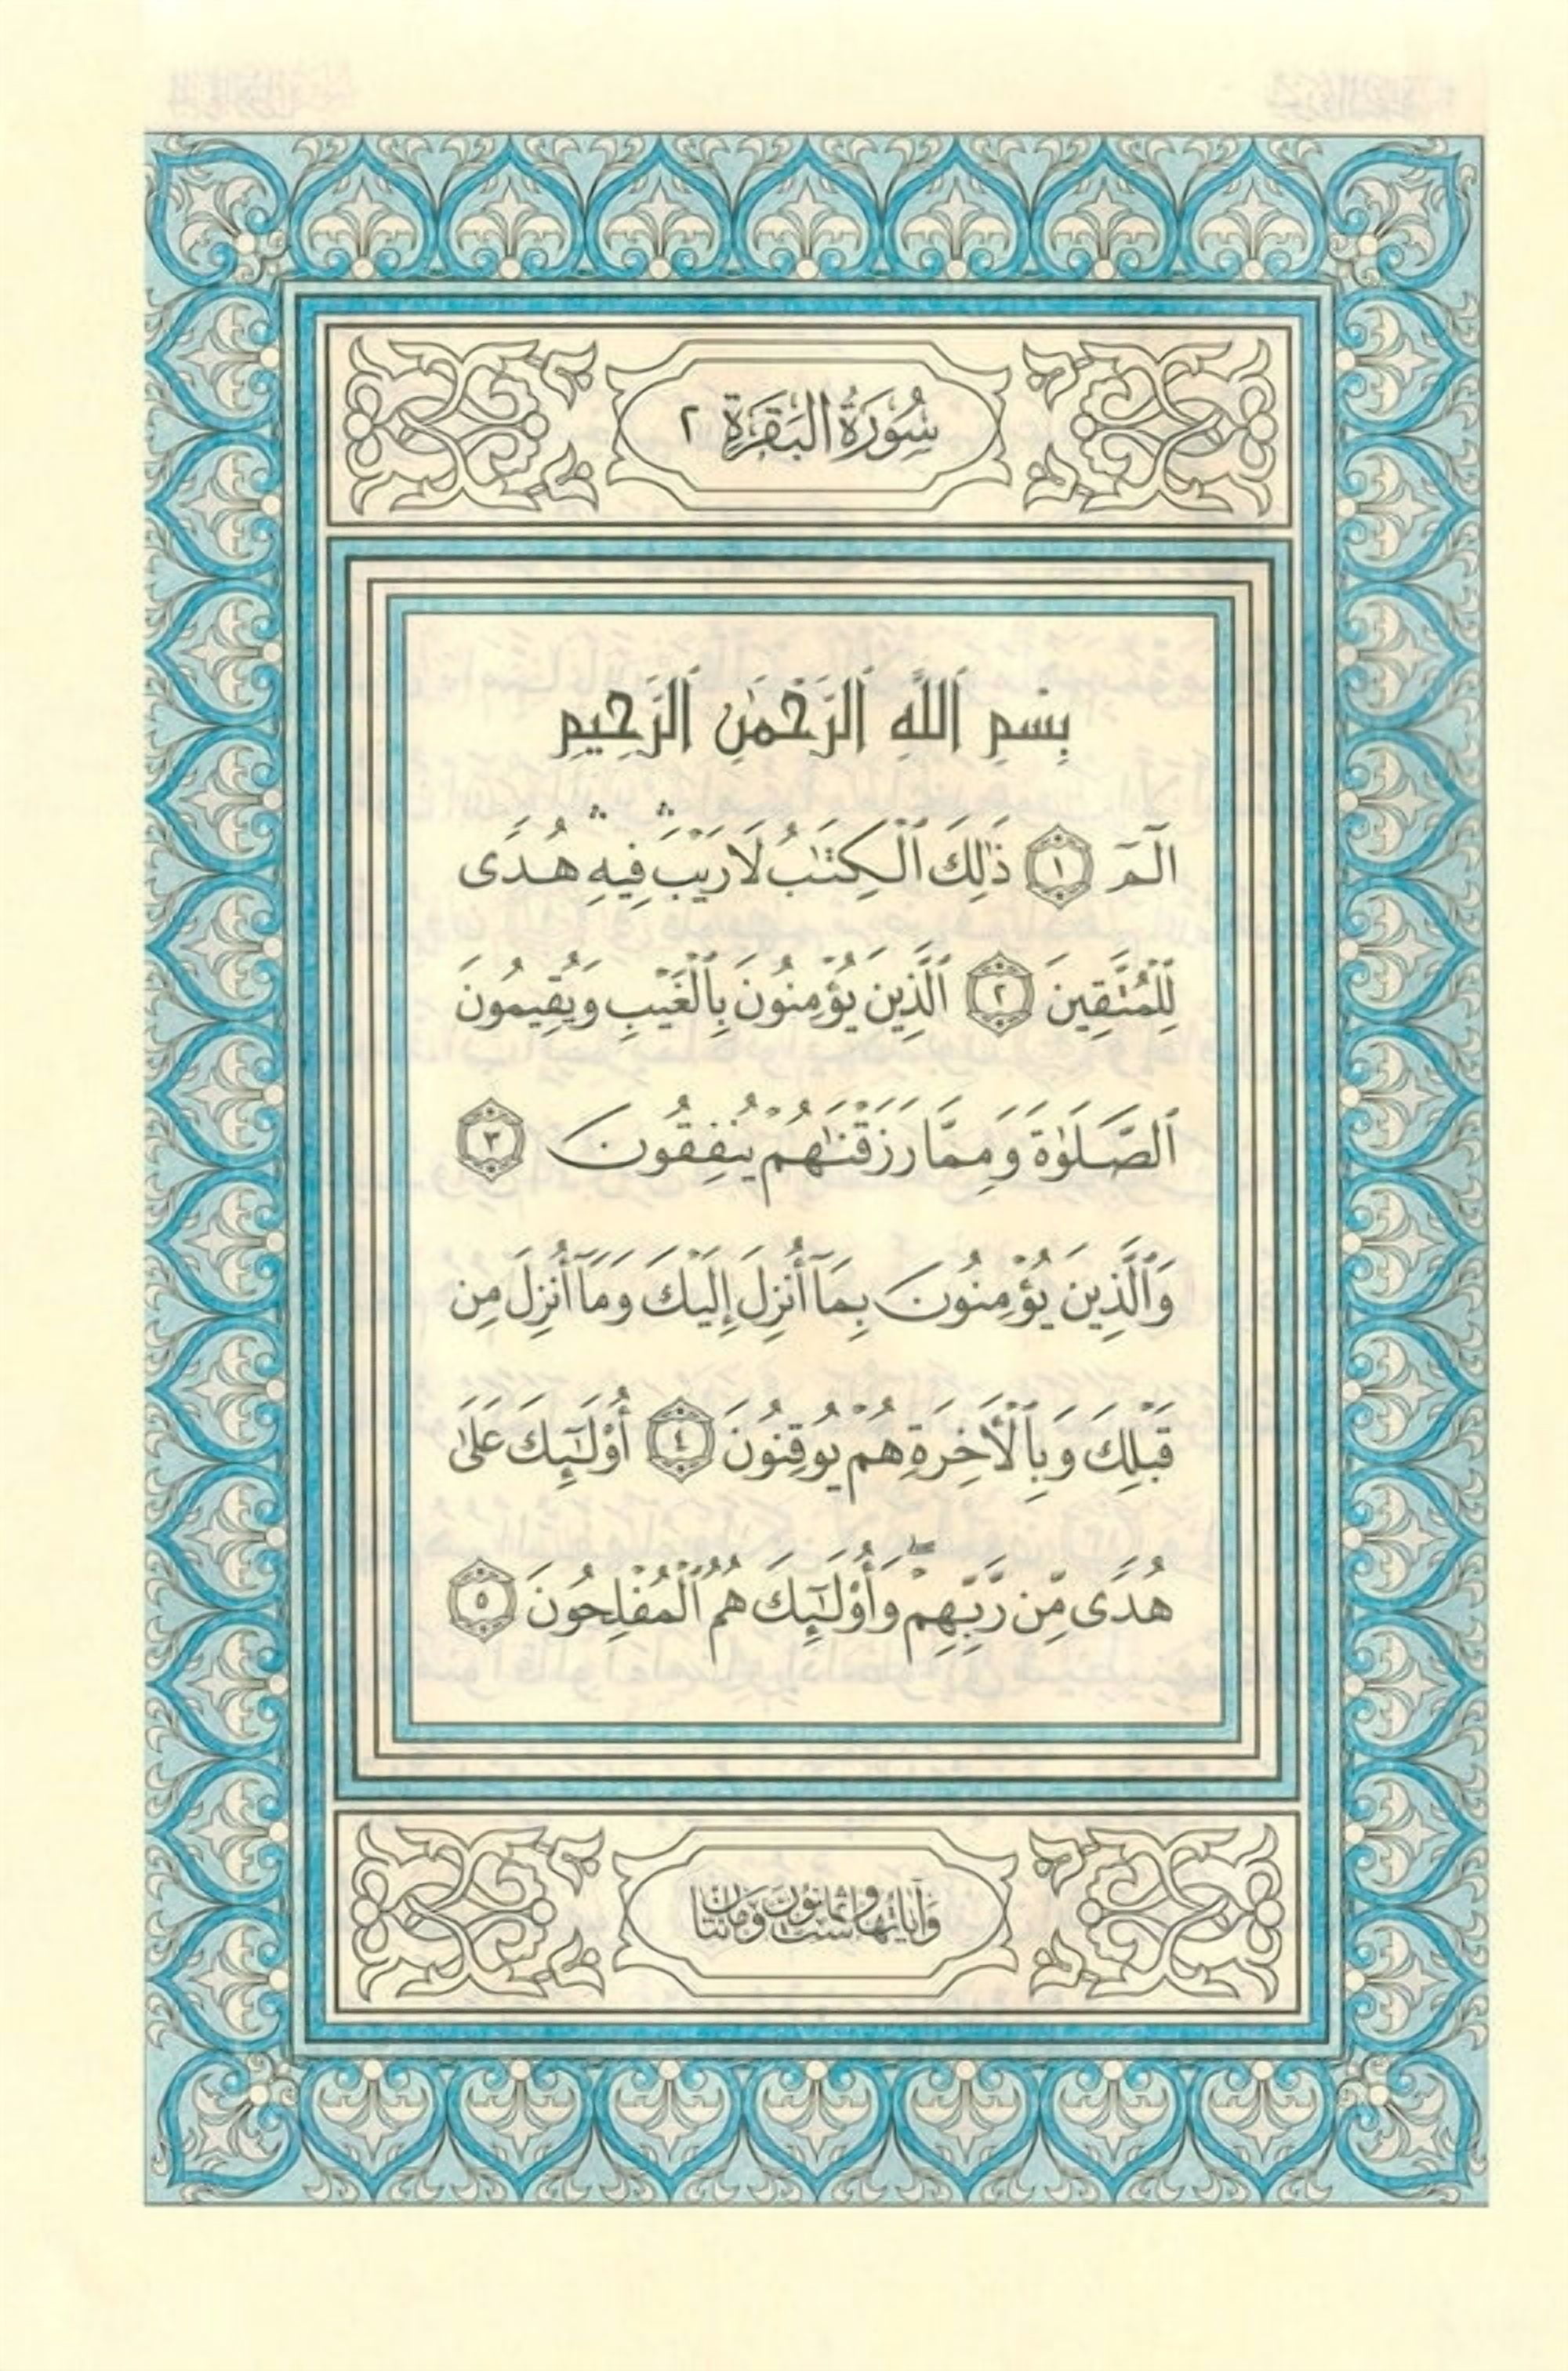 سُورَةُ البَقَرَةِ ٢
بِسْمِ ٱللَّهِ ٱلرَّحْمَٰنِ ٱلرَّحِيمِ
الٓمٓ ١ ذَٰلِكَ ٱلْكِتَٰبُ لَا رَيْبَ ۛ فِيهِ ۛ هُدًى
لِّلْمُتَّقِينَ ٢ ٱلَّذِينَ يُؤْمِنُونَ بِٱلْغَيْبِ وَيُقِيمُونَ
ٱلصَّلَوٰةَ وَمِمَّا رَزَقْنَٰهُمْ يُنفِقُونَ ٣
وَٱلَّذِينَ يُؤْمِنُونَ بِمَآ أُنزِلَ إِلَيْكَ وَمَآ أُنزِلَ مِن
قَبْلِكَ وَبِٱلْأَخِرَةِ هُمْ يُوقِنُونَ ٤ أُو۟لَٰٓئِكَ عَلَىٰ
هُدًى مِّن رَّبِّهِمْ ۖ وَأُو۟لَٰٓئِكَ هُمُ ٱلْمُفْلِحُونَ ٥
وَآيَاتُهَا سِتٌّ وَثَمَانُونَ وَمِائَتَانِ